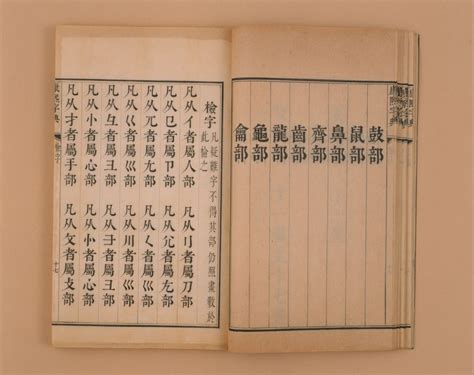 鼓部
鼠部
鼻部
齊部
齒部
龍部
龜部
龠部
檢字
凡疑難字不得其部仍照畫數於
此檢之
凡从亻者屬人部 凡从刂者屬刀部
凡从㔾者屬卩部 凡从尣者屬尢部
凡从兀者屬尢部 凡从く者屬巛部
凡从巜者屬巛部 凡从川者屬巛部
凡从彑者屬彐部 凡从者屬彐部
凡从忄者屬心部 凡从㣺者屬心部
凡从扌者屬手部 凡从攵者屬攴部
康熙字典 檢字